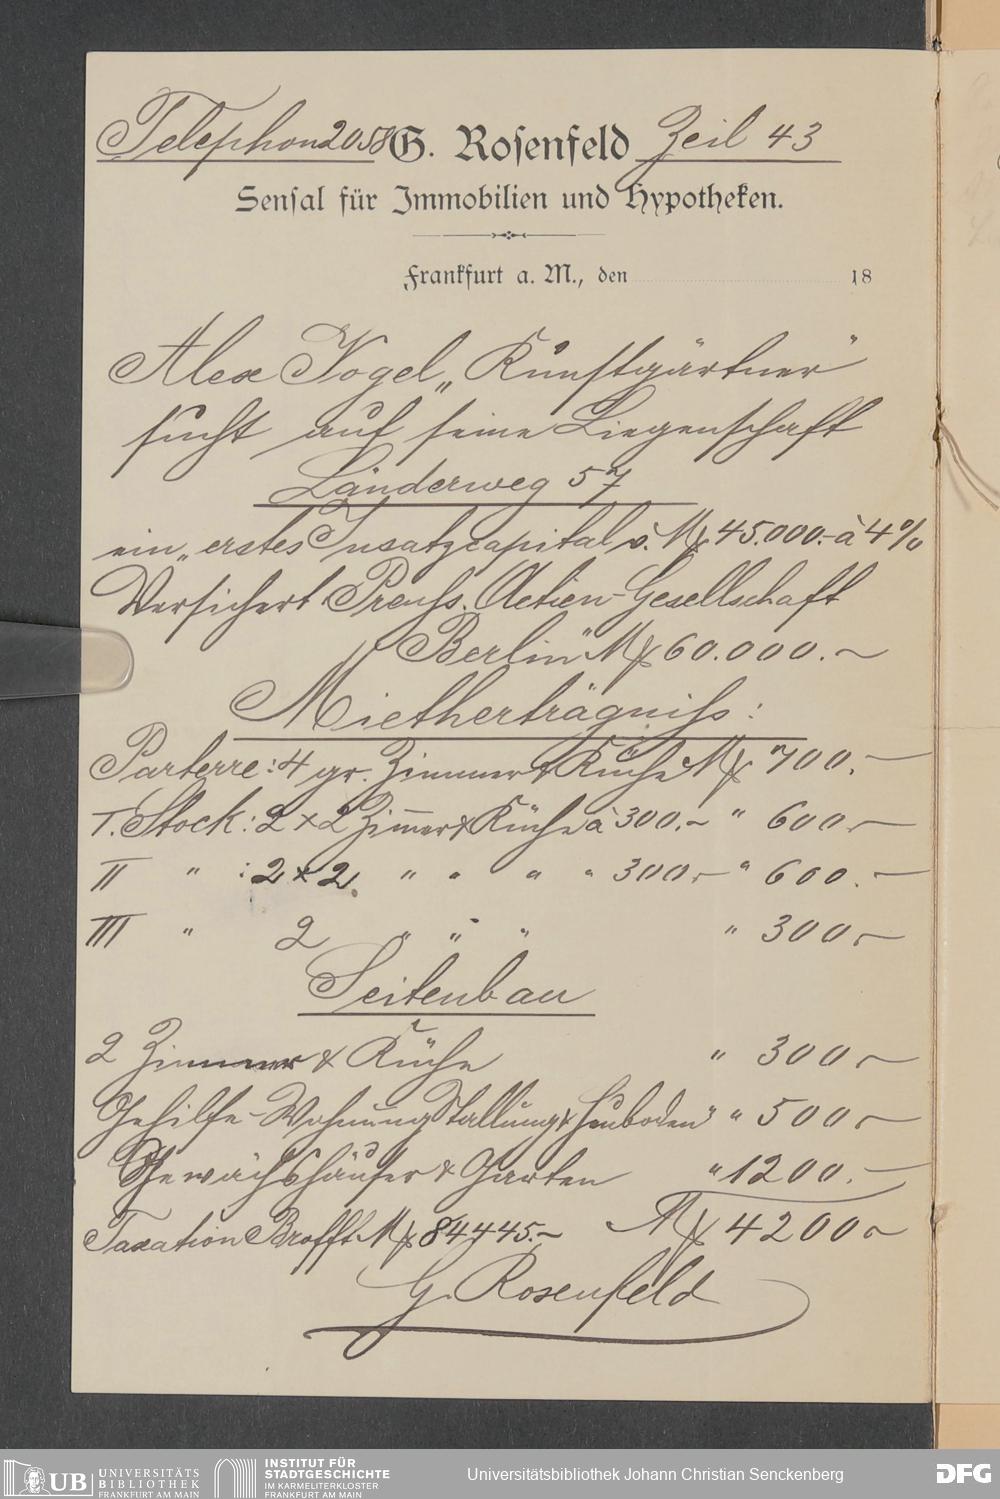 Telephon 2058 G. Rosenfeld Zeil 43
Sensal für Immobilien und Hypotheken.
Frankfurt a. M., den 18
Alex Vogel „Kunstgärtner"
sucht auf seine Liegenschaft
Länderweg 57
ein „erstes Insatzcapital v. Mk 45.000.- à 4%
Versichert Preuss. Actien-Gesellschaft
Berlin" Mk 60.000.-
Mietherträgniss:
Parterre: 4 gr. Zimmer & Küche Mk 700.-
I. Stock: 2 x 2 Zimmer & Küche à 300.- " 600.-
II " : 2 x 2 " " " " 300.- " 600.-
III " 2 " " " " 300.-
Seitenbau
2 Zimmer & Küche " 300.-
Gehilfe-Wohnung Stallung & Heuboden " 500.-
Gewächshäuser & Garten " 1200.-
Taxation Brofft Mk 84445.- Mk 4200.-
G. Rosenfeld
UB UNIVERSITÄTS
BIBLIOTHEK
FRANKFURT AM MAIN
INSTITUT FÜR
STADTGESCHICHTE
IM KARMELITERKLOSTER
FRANKFURT AM MAIN
Universitätsbibliothek Johann Christian Senckenberg
DFG